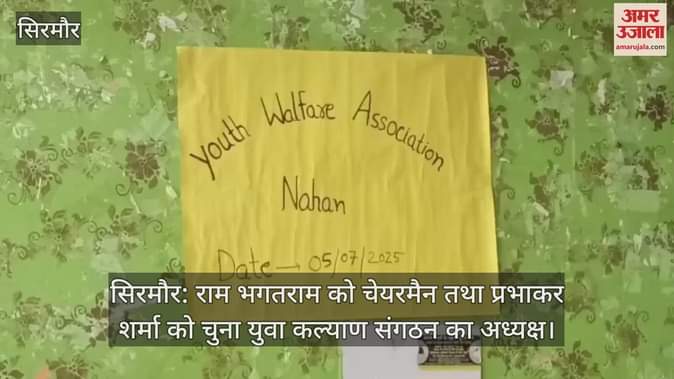 सिरमौर
अमर
उजाला
amarujala.com
Youth Walfare Association
Nahan
Date → 05/07/2025
सिरमौर: राम भगतराम को चेयरमैन तथा प्रभाकर
शर्मा को चुना युवा कल्याण संगठन का अध्यक्ष।